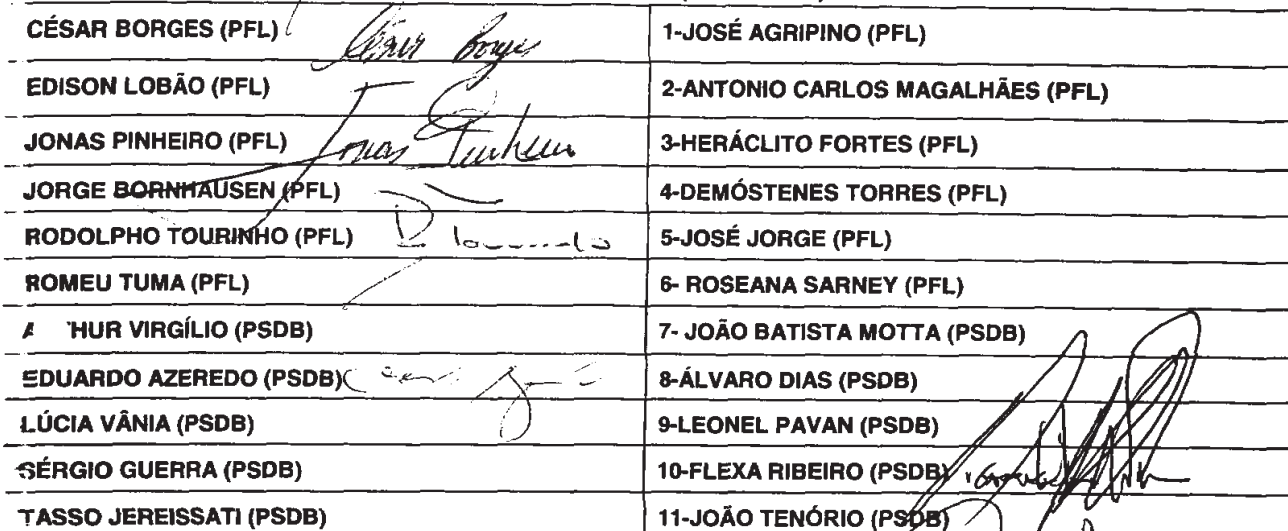 CÉSAR BORGES (PFL) César Borges
1-JOSÉ AGRIPINO (PFL)
EDISON LOBÃO (PFL)
2-ANTONIO CARLOS MAGALHÃES (PFL)
JONAS PINHEIRO (PFL) Jonas Pinheiro
3-HERÁCLITO FORTES (PFL)
JORGE BORNHAUSEN (PFL)
4-DEMÓSTENES TORRES (PFL)
RODOLPHO TOURINHO (PFL)
5-JOSÉ JORGE (PFL)
ROMEU TUMA (PFL)
6- ROSEANA SARNEY (PFL)
A HUR VIRGÍLIO (PSDB)
7- JOÃO BATISTA MOTTA (PSDB)
EDUARDO AZEREDO (PSDB)
8-ÁLVARO DIAS (PSDB)
LÚCIA VÂNIA (PSDB)
9-LEONEL PAVAN (PSDB)
SÉRGIO GUERRA (PSDB)
10-FLEXA RIBEIRO (PSDB)
TASSO JEREISSATI (PSDB)
11-JOÃO TENÓRIO (PSDB)